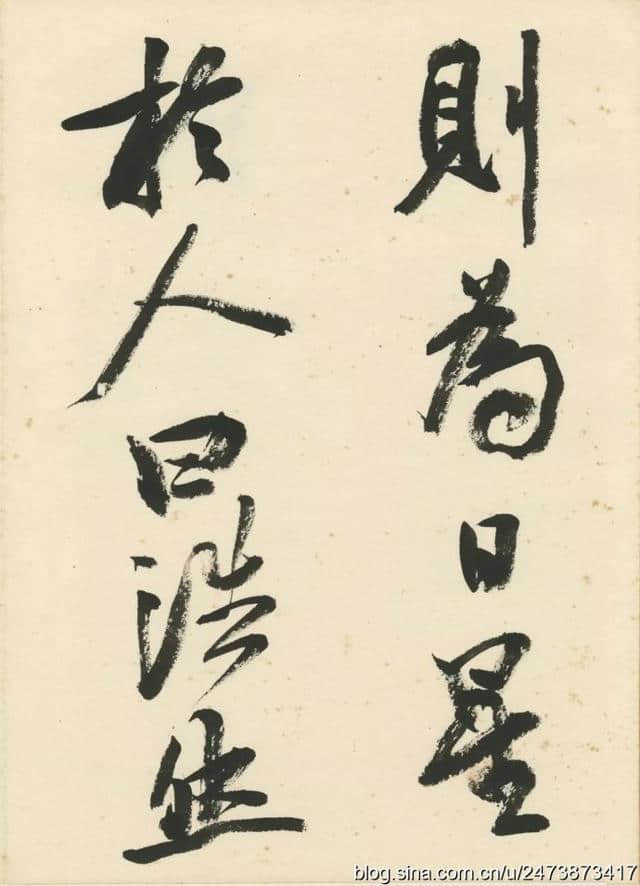 則為日星
於人曰浩然
blog.sina.com.cn/u/2473873417